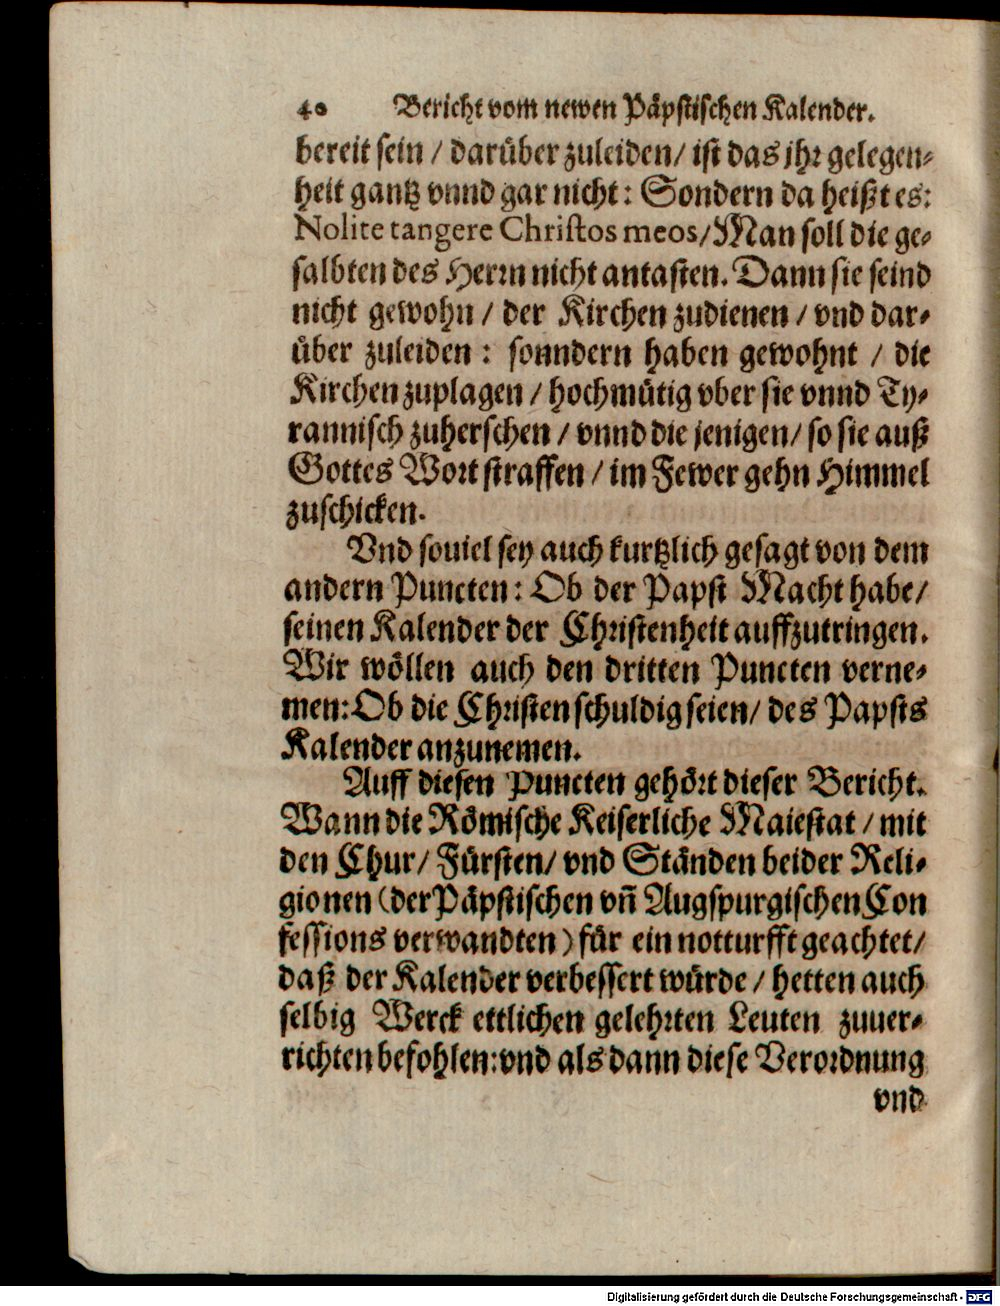 40 Bericht vom newen Päpstischen Kalender.
bereit sein / darüber zuleiden / ist das jhr gelegen-
heit gantz vnnd gar nicht: Sondern da heißt es:
Nolite tangere Christos meos / Man soll die ge-
salbten des Herrn nicht antasten. Dann sie seind
nicht gewohn / der Kirchen zudienen / vnd dar-
über zuleiden: sonndern haben gewohnt / die
Kirchen zuplagen / hochmütig vber sie vnnd Ty-
rannisch zuherschen / vnnd die jenigen / so sie auß
Gottes Wort straffen / im Fewer gehn Himmel
zuschicken.
Vnd souiel sey auch kurtzlich gesagt von dem
andern Puncten: Ob der Papst Macht habe /
seinen Kalender der Christenheit auffzutringen.
Wir wöllen auch den dritten Puncten verne-
men: Ob die Christen schuldig seien / des Papsts
Kalender anzunemen.
Auff diesen Puncten gehört dieser Bericht.
Wann die Römische Keiserliche Maiestat / mit
den Chur / Fürsten / vnd Ständen beider Reli-
gionen (der Päpstischen vñ Augspurgischen Con
fessions verwandten) für ein notturfft geachtet /
daß der Kalender verbessert würde / hetten auch
selbig Werck ettlichen gelehrten Leuten zuuer-
richten befohlen: vnd als dann diese Verordnung
vnd
Digitalisierung gefördert durch die Deutsche Forschungsgemeinschaft - DFG